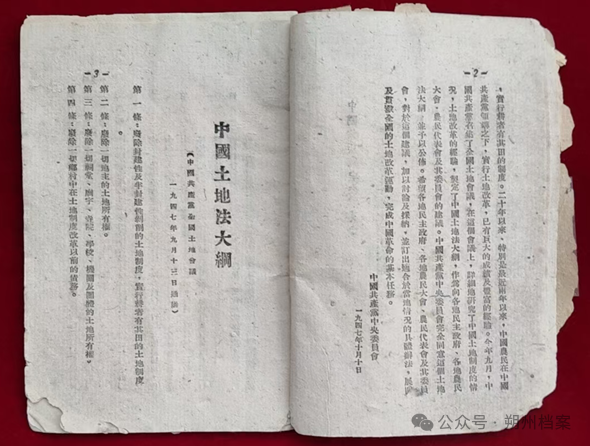 —2—
，實行耕者有其田的制度。二十年以來，特別是最近兩年以來，中國農民在中國
共產黨領導之下，實行土地改革，已有巨大的成績及豐富的經驗。今年九月，中
國共產黨召集了全國土地會議，在這個會議上，詳細地研究了中國土地制度的情
況，土地改革的經驗，制定了中國土地法大綱，作為向各地民主政府、各地農民
大會、農民代表會及其委員會的建議。中國共產黨中央委員會完全同意這個土地
法大綱，並予以公佈。希望各地民主政府、各地農民大會、農民代表會及其委員
會，對於這個建議，加以討論及採納，並訂出適合於當地情況的具體辦法，展開
及貫徹全國的土地改革運動，完成中國革命的基本任務。
中國共產黨中央委員會
一九四七年十月十日
—3—
中國土地法大綱
（中國共產黨全國土地會議
一九四七年九月十三日通過）
第一條：廢除封建性及半封建性剝削的土地制度，實行耕者有其田的土地制度
。
第二條：廢除一切地主的土地所有權。
第三條：廢除一切祠堂、廟宇、寺院、學校、機關及團體的土地所有權。
第四條：廢除一切鄉村中在土地制度改革以前的債務。
公众号·朔州档案